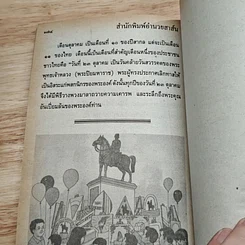 ๑๗๔
สำนักพิมพ์อำนวยสาส์น
เดือนตุลาคม เป็นเดือนที่ ๑๐ ของปีสากล แต่จะเป็นเดือน
๑๑ ของไทย เดือนนี้เป็นเดือนที่สำคัญเดือนหนึ่งของประชาชน
ชาวไทยคือ วันที่ ๒๓ ตุลาคม เป็นวันคล้ายวันสวรรคตของพระ
พุทธเจ้าหลวง (พระปิยมหาราช) พระผู้ทรงประกาศเลิกทาสให้
เป็นอิสระแก่พสกนิกรของพระองค์ ดังนั้นทุกปีของวันที่ ๒๓ ตุลาคม
จึงได้มีพิธีวางพวงมาลาถวายความเคารพ และระลึกถึงพระคุณ
อันเปี่ยมล้นของพระองค์ท่าน